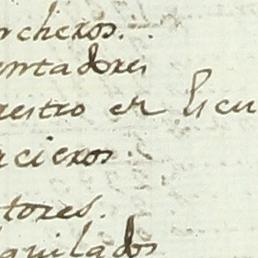 rcheros.
entadores
restro en Escu
ncieros
tores.
quilados